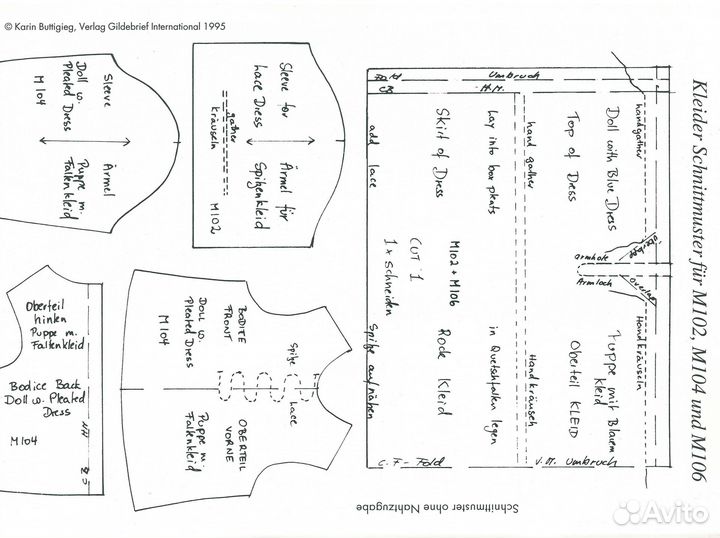 © Karin Buttigieg, Verlag Gildebrief International 1995
Kleider Schnittmuster für M102, M104 und M106
Sleeve
Doll w.
Pleated Dress
M104
Ärmel
Puppe m.
Faltenkleid
Sleeve for
Lace Dress
gather
kräuseln
Ärmel für
Spitzenkleid
M102
Fold
Umbruch
CB
H.M.
handgather
Doll with Blue Dress
Top of Dress
hand gather
Lay into box pleats
Skirt of Dress
add lace
armhole
Armloch
overlap
M102 + M106
CUT 1
1x Schneiden
Handkräuseln
Puppe mit Blauem
Kleid
Oberteil KLEID
Handkräusch
in Quetschfalten legen
Rock Kleid
Spitze aufnähen
C.F - Fold
V.M. Umbruch
Oberteil
hinten
Puppe m.
Faltenkleid
Bodice Back
Doll w. Pleated
Dress
M104
BODICE
FRONT
DOLL w.
Pleated Dress
M104
Spitze
Lace
OBERTEIL
VORNE
Puppe m.
Faltenkleid
Schnittmuster ohne Nahtzugabe
Avito